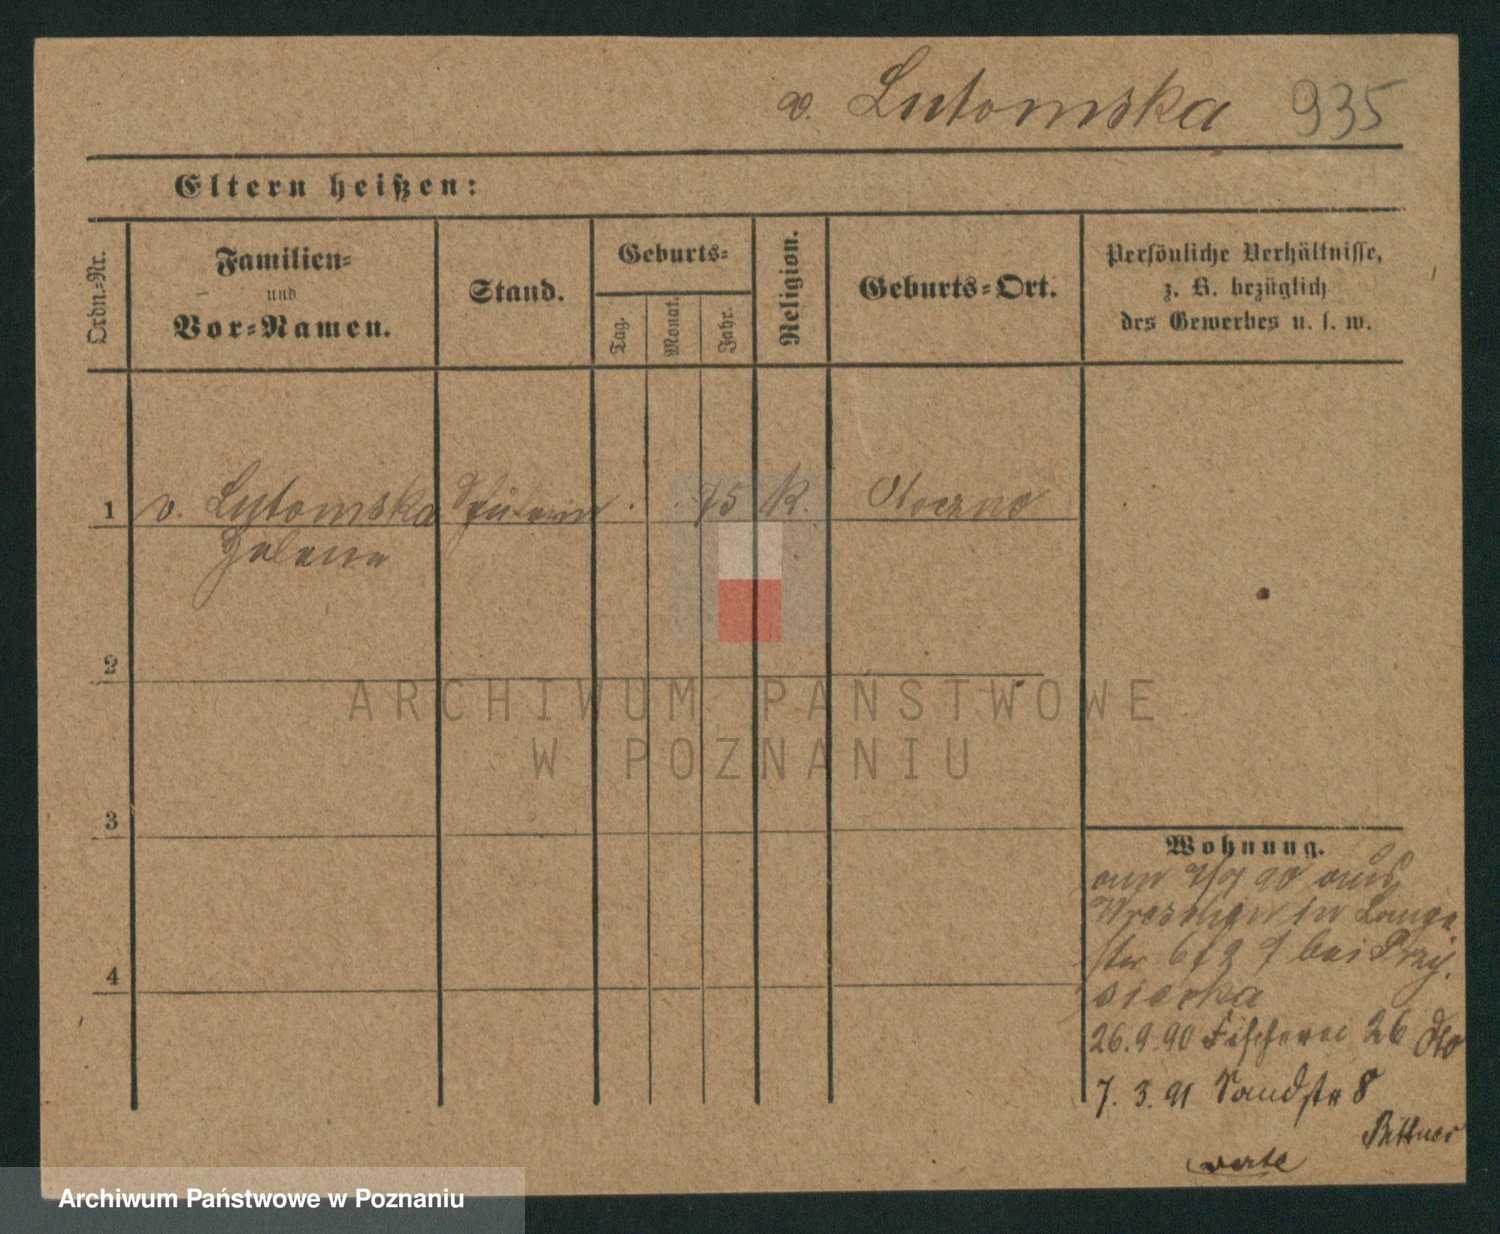 v. Lutomska 935
Eltern heißen:
Ordn.-Nr.
Familien-
und
Vor-Namen.
Stand.
Geburts-
Tag.
Monat.
Jahr.
Religion.
Geburts-Ort.
Persönliche Verhältnisse,
z. B. bezüglich
des Gewerbes u. s. w.
1 v. Lutomska 75 K. Otoczno
Helena
2
3
4
Wohnung.
aus
Wreschen in Lange
str 6 bei Przy
siecka
26.9.90 Fischerei 26 dto
7. 3. 91 Sandstr 8
Bittner
verte
ARCHIWUM PAŃSTWOWE
W POZNANIU
Archiwum Państwowe w Poznaniu